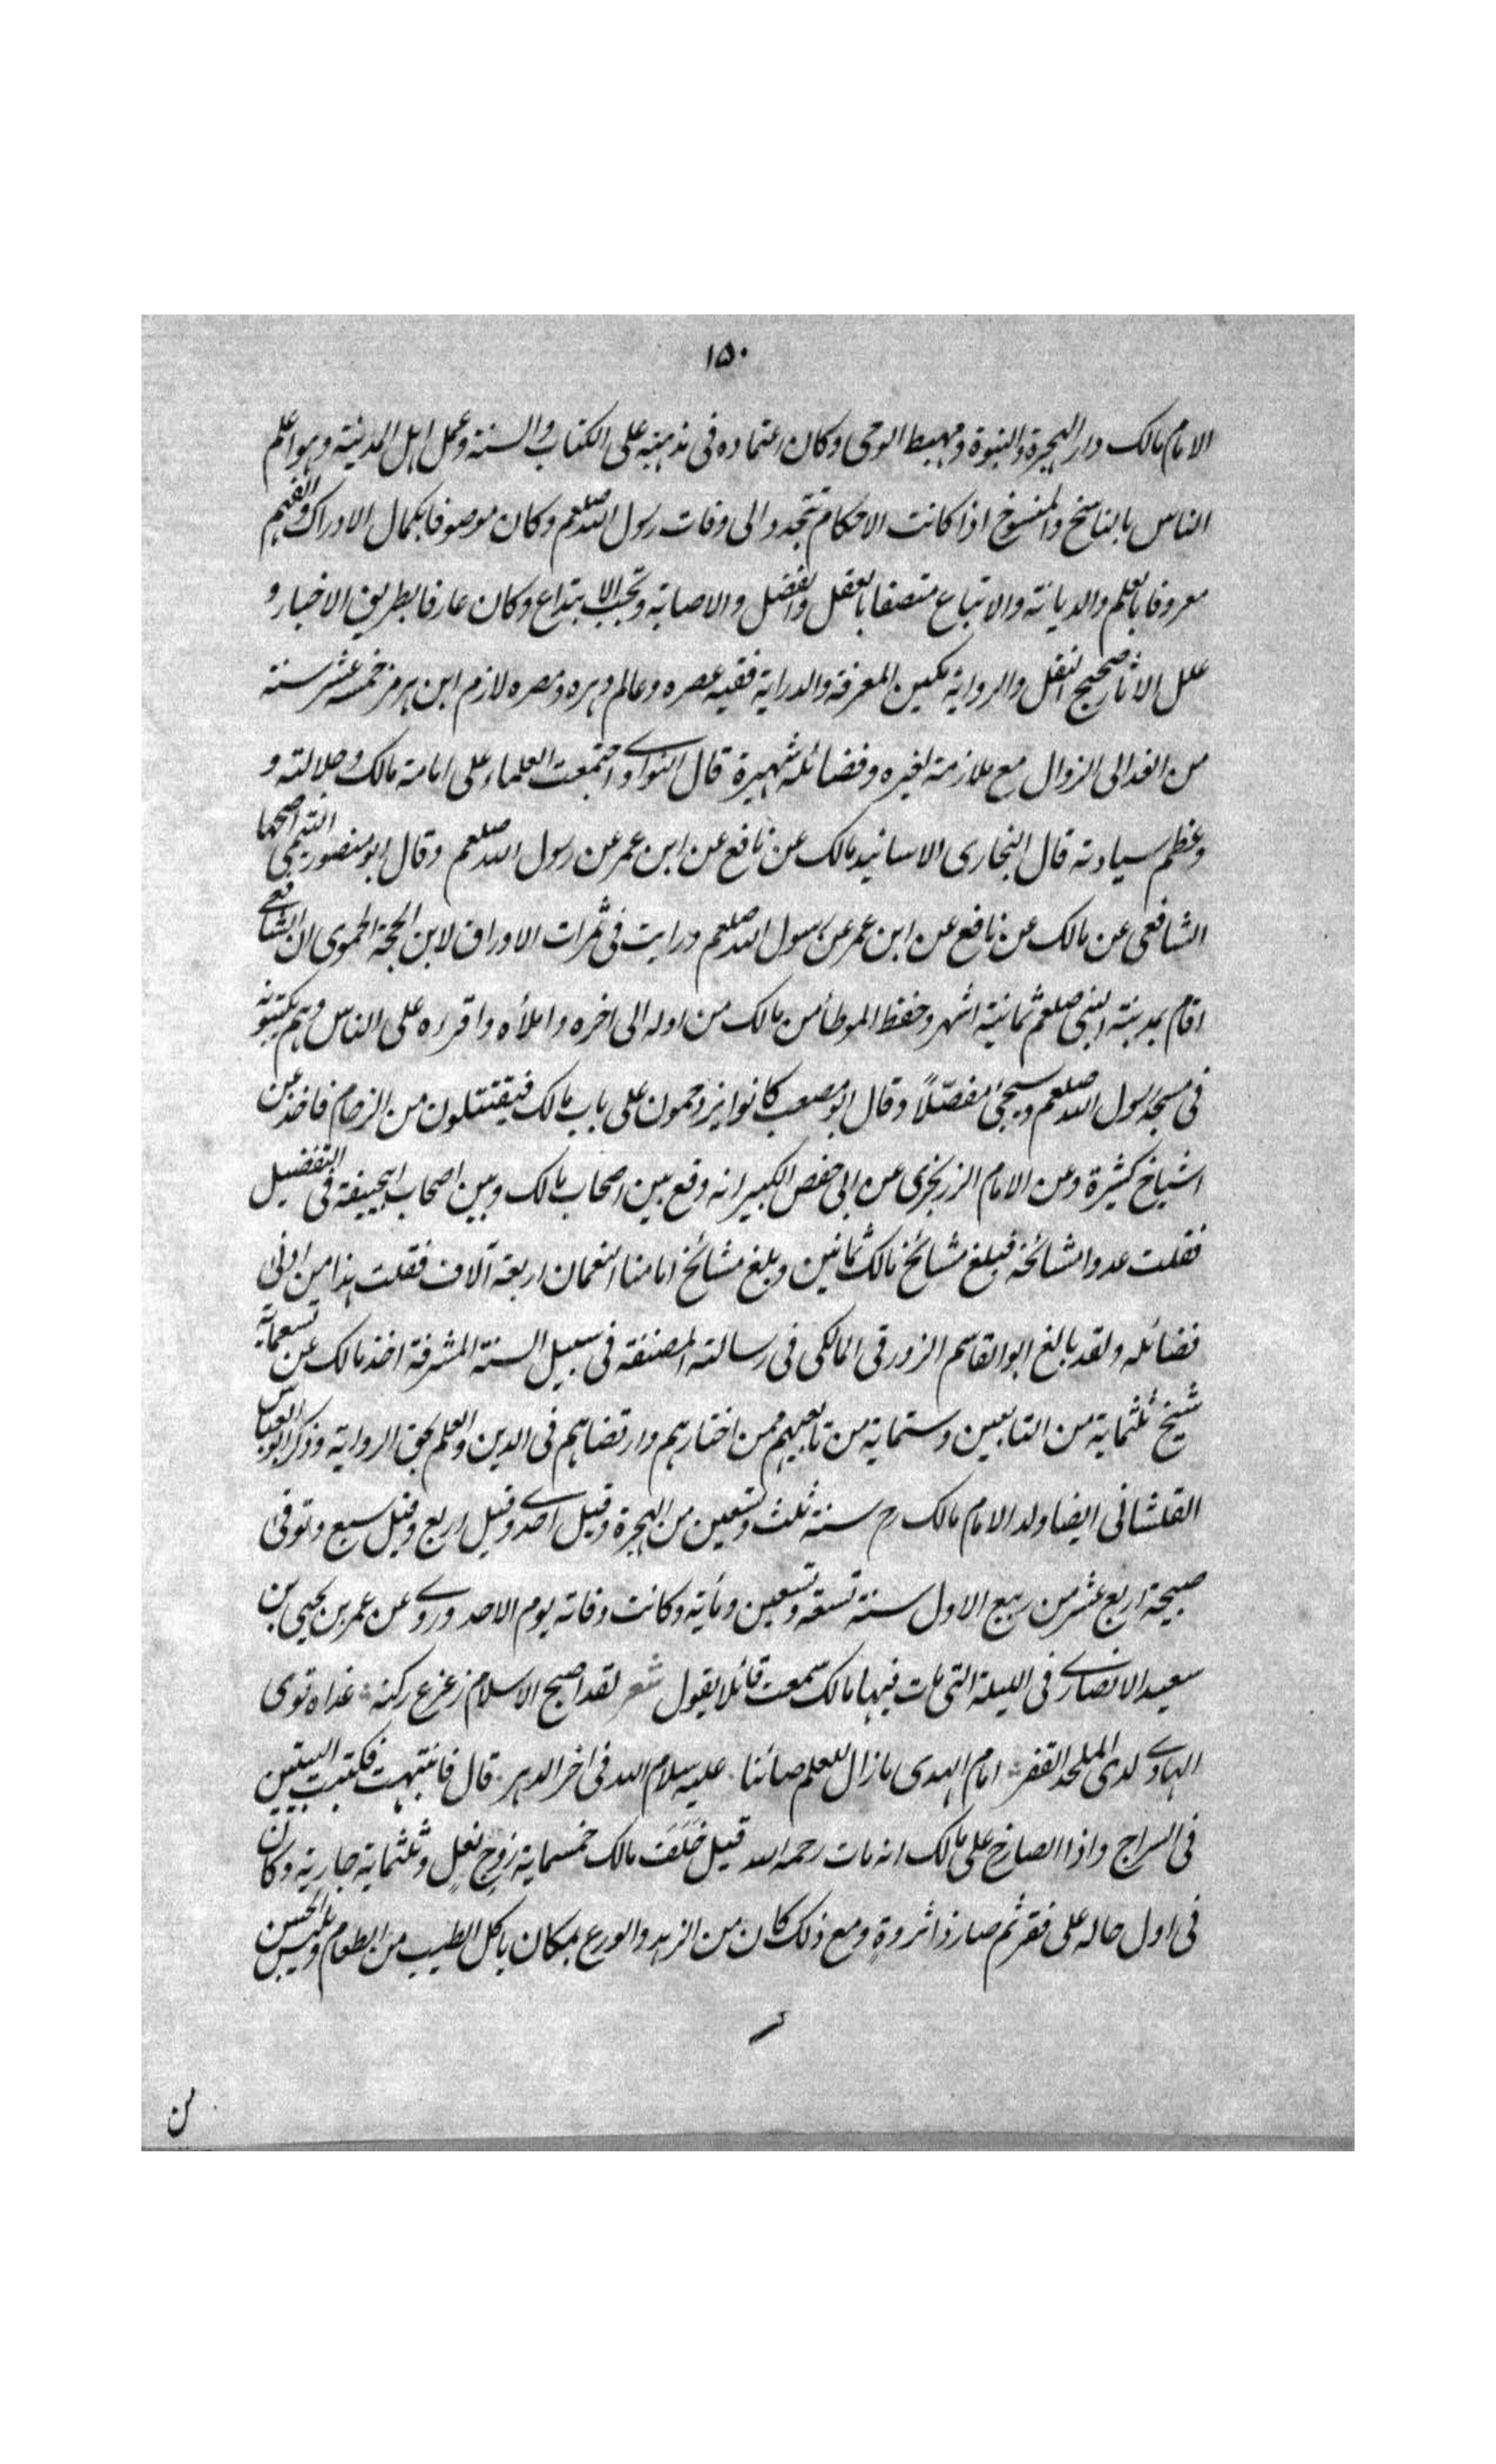 ١٥٠
الامام مالك دار الهجرة والنبوة ومهبط الوحى وكان اعتماده فى مذهبه على الكتاب والسنة وعمل اهل المدينة وهو اعلم
الناس بالناسخ والمنسوخ اذا كانت الاحكام تتجدد الى وفات رسول الله صلعم وكان موصوفا بكمال الادراك والفهم
معروفا بالعلم والديانة والاتباع متصفا بالعقل والفضل والاصابة وتجنب الابتداع وكان عارفا بطريق الاخبار و
علل الاثار صحيح النقل والرواية مكين المعرفة والدراية فقيه عصره وعالم دهره ومصره لازم ابن هرمز خمسة عشر سنة
من الغد الى الزوال مع ملازمة لغيره وفضائله شهيرة قال النواوى اجتمعت العلماء على امامة مالك وجلالته و
وعظم سيادته قال البخارى الاسانيد مالك عن نافع عن ابن عمر عن رسول الله صلعم وقال ابو منصور التميمى اصحها
الشافعى عن مالك عن نافع عن ابن عمر عن رسول الله صلعم ورايت فى ثمرات الاوراق لابن الحجة الحموى ان الشافعى
اقام بمدينة النبى صلعم ثمانية اشهر وحفظ الموطأ من مالك من اوله الى اخره واملأه واقرءه على الناس وهم يكتبونه
فى مسجد رسول الله صلعم وسيجئ مفصّلاً وقال ابو مصعب كانوا يزدحمون على باب مالك فيقتتلون من الزحام فاخذ عن
اشياخ كثيرة وعن الامام الزرنجرى عن ابى حفص الكبير انه وقع بين اصحاب مالك وبين اصحاب ابيحنيفة فى التفضيل
فقلت عدوا مشائخه فبلغ مشائخ مالك ثمانين وبلغ مشائخ امامنا النعمان اربعة آلاف فقلت هذا من ادنى
فضائله ولقد بالغ ابو القاسم الزورقى المالكى فى رسالته المصنفة فى سبيل السنة المشرفة اخذ مالك عن تسعماية
شيخ ثلثماية من التابعين وستماية من تابعيهم ممن اختارهم وارتضاهم فى الدين والعلم بحق الرواية وذكر ابو العباس
القلشانى ايضا ولد الامام مالك رح سنة ثلث وتسعين من الهجرة وقيل احدى وقيل اربع وقيل سبع وتوفى
صبيحة اربع عشر من ربيع الاول سنة تسعة وتسعين ومأية وكانت وفاته يوم الاحد وروى عن عمر بن يحيى بن
سعيد الانصارى فى الليلة التى مات فيها مالك سمعت قائلا يقول شعر لقد اصبح الاسلام زعزع ركنه غداه توى
الهادى لدى الملحد القفر امام الهدى مازال للعلم صائنا عليه سلام الله فى اخر الدهر قال فانتبهت فكتبت البيتين
فى السراج واذا الصارخ على مالك انه مات رحمه الله قيل خَلَفَ مالك خمسماية زوج نعلٍ وثلثماية جارية وكان
فى اول حاله على فقر ثم صار ذا ثروةٍ ومع ذلك كان من الزهد والورع بمكان ياكل الطيب من الطعام ويلبس الحسن
من